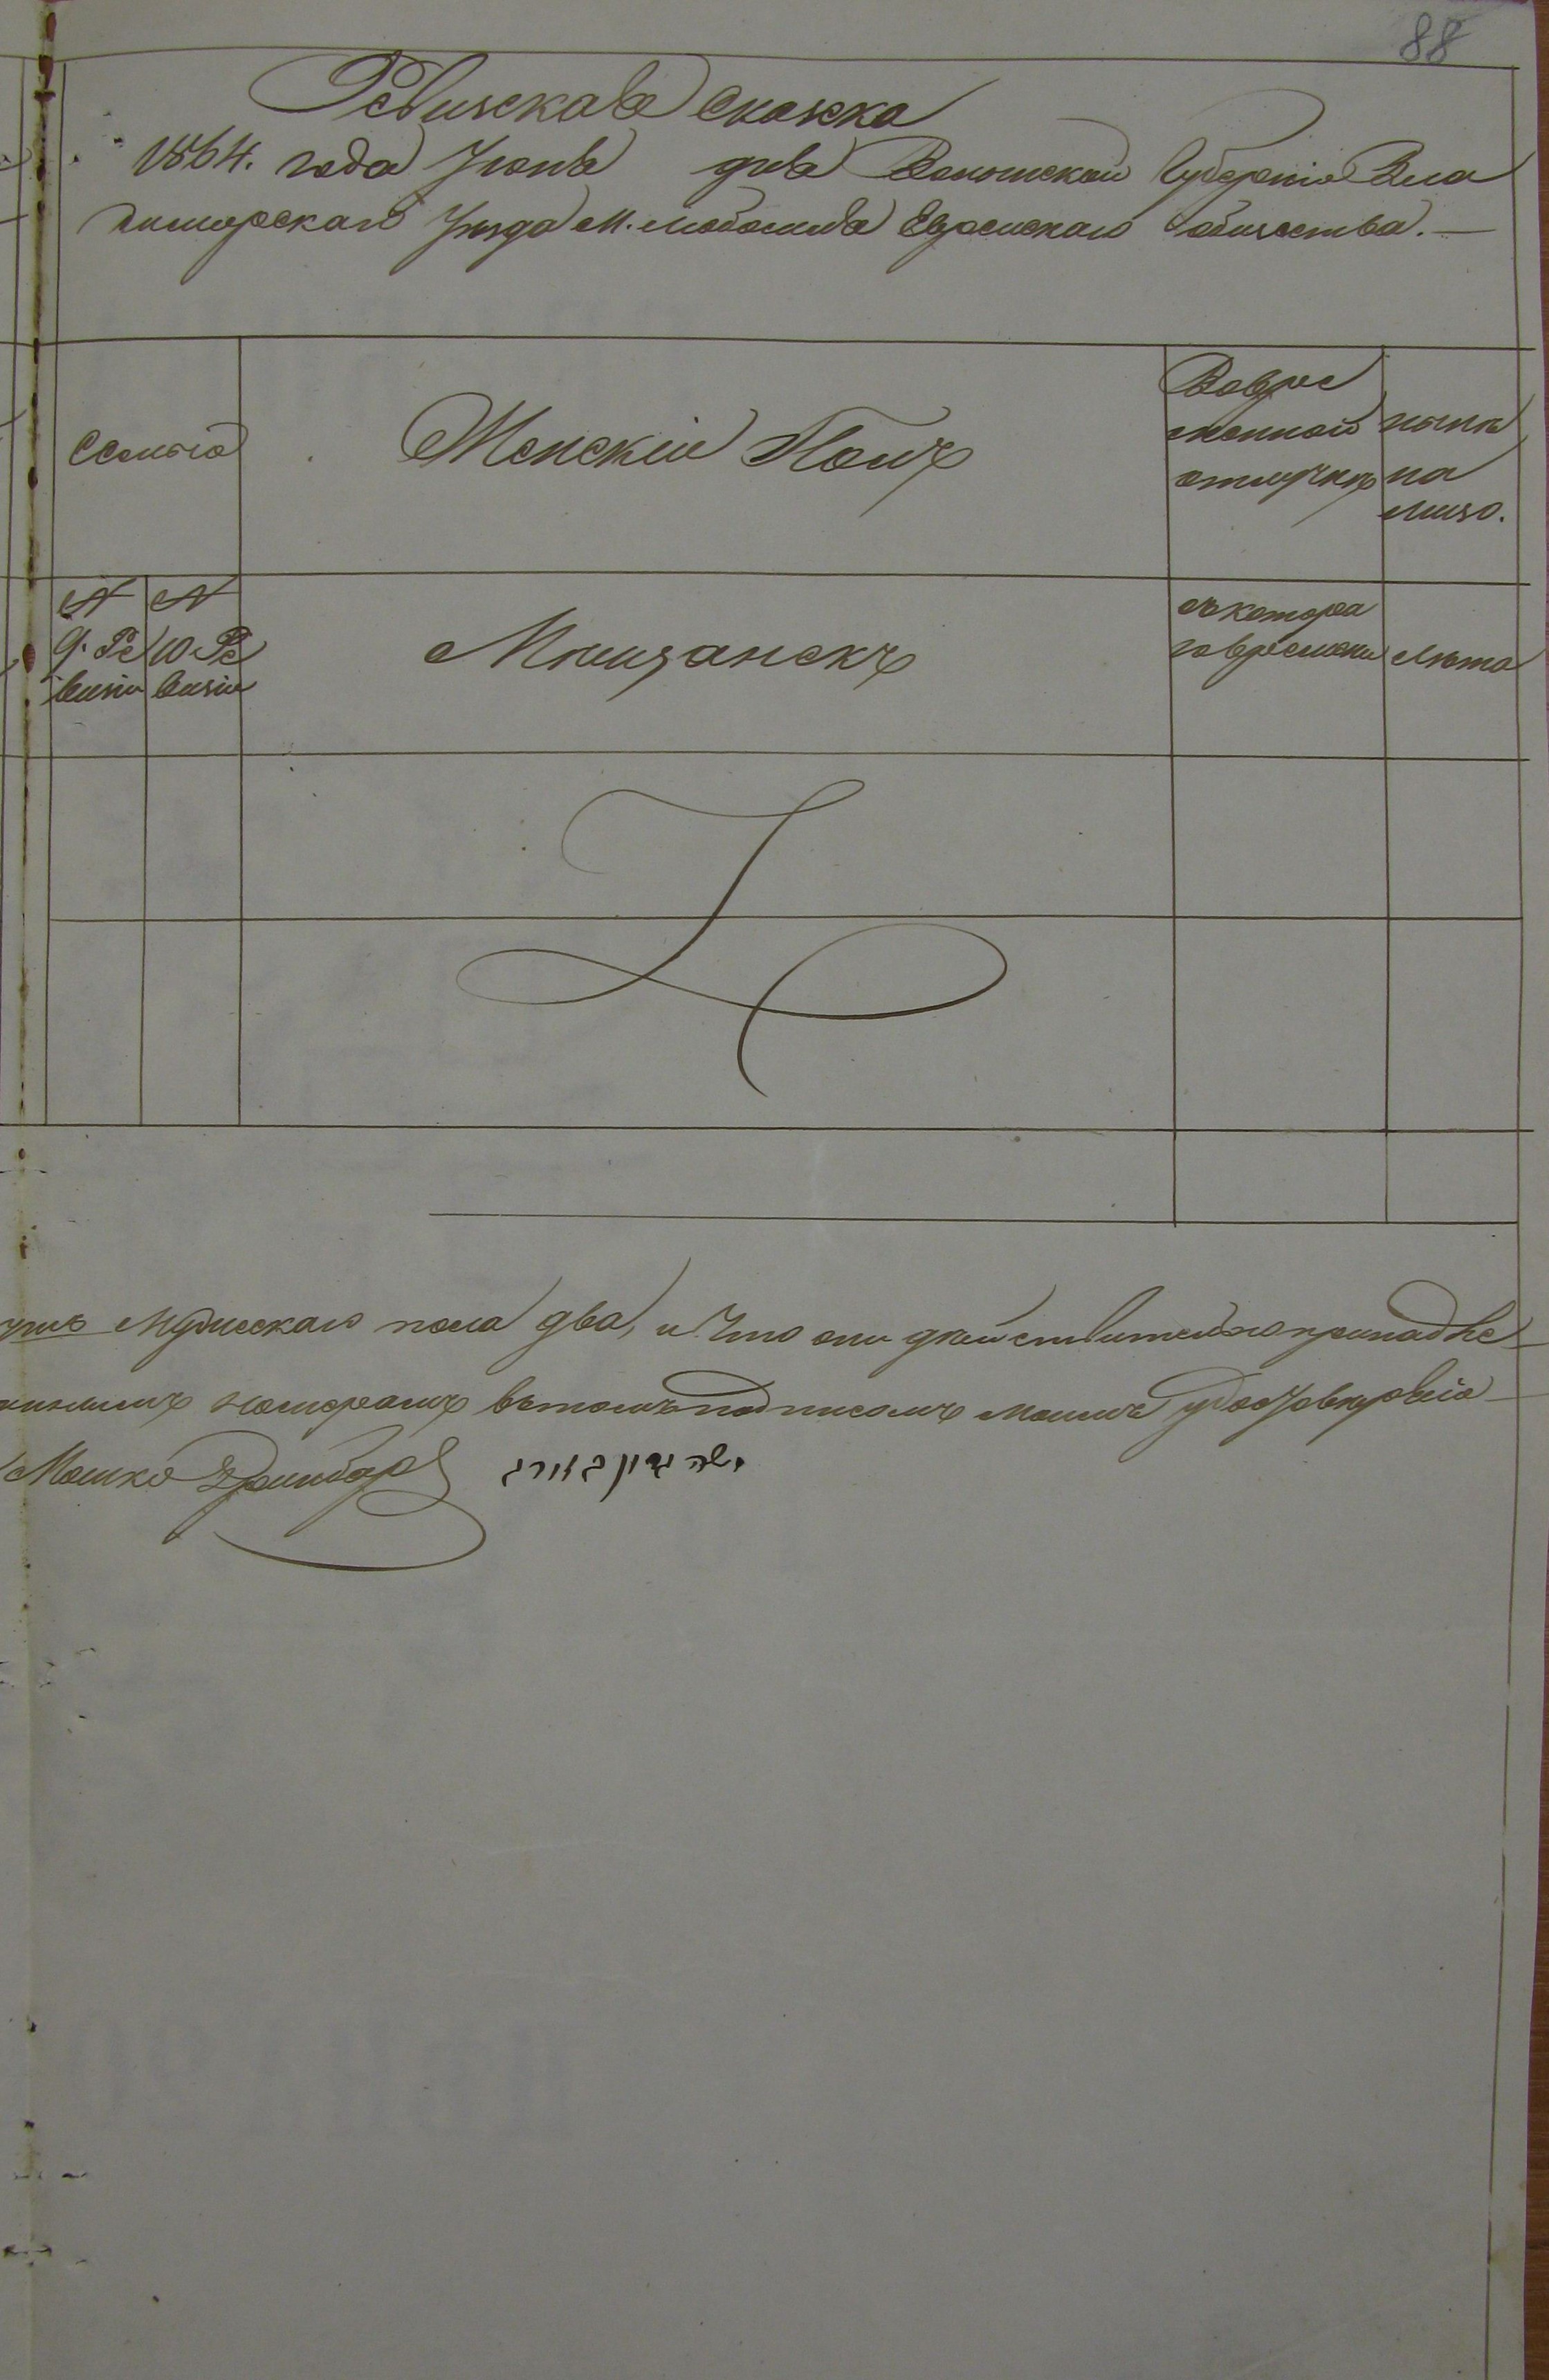 88
Ревизская сказка
1864. года Іюня дня Волынской Губерніи Вла
димирскаго Уезда М. Любомля Еврейскаго общества.—
Семьи
Женскій Полъ
Вовре
менной
отлучкѣ
нынѣ
на
лицо.
N
9. Ре
визіи
N
10 Ре
визіи
Мещанскъ
съ котора
го времени
лѣта
мужескаго пола два, и что они действительно принадле
номерамъ въ томъ подписомъ моимъ удостовѣряю
Мошко Гринбарг